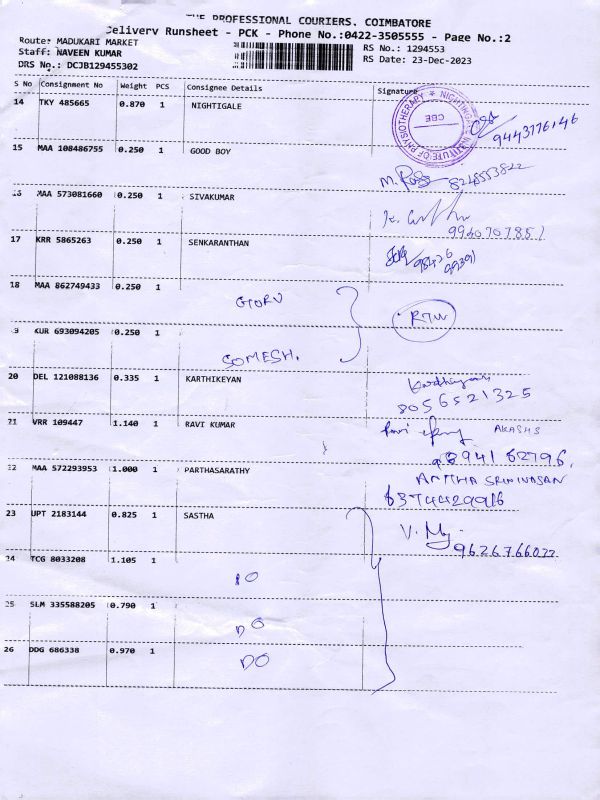 THE PROFESSIONAL COURIERS. COIMBATORE
Delivery Runsheet - PCK - Phone No.:0422-3505555 - Page No.:2
Route: MADUKARI MARKET
Staff: NAVEEN KUMAR
DRS No.: DCJB129455302
RS No.: 1294553
RS Date: 23-Dec-2023
S No Consignment No Weight PCS Consignee Details Signature
14 TKY 485665 0.870 1 NIGHTIGALE
PHYSIOTHERAPY ★ NIGHTINGALE INSTITUTE OF
CBE
9443776146
15 MAA 108486755 0.250 1 GOOD BOY
8248553822
16 MAA 573081660 0.250 1 SIVAKUMAR
9940707851
17 KRR 5865263 0.250 1 SENKARANTHAN
18 MAA 862749433 0.250 1
GTORU
19 KUR 693094205 0.250 1
SOMESH.
20 DEL 121088136 0.335 1 KARTHIKEYAN
Karthikeyan
8056521325
21 VRR 109447 1.140 1 RAVI KUMAR
AKASHS
8941 62796,
22 MAA 572293953 1.000 1 PARTHASARATHY
AMTHA SRINIVASAN
6374429916
23 UPT 2183144 0.825 1 SASTHA
9626766022
24 TCG 8033208 1.105 1
DO
25 SLM 335588205 0.790 1
DO
26 DDG 686338 0.970 1
DO